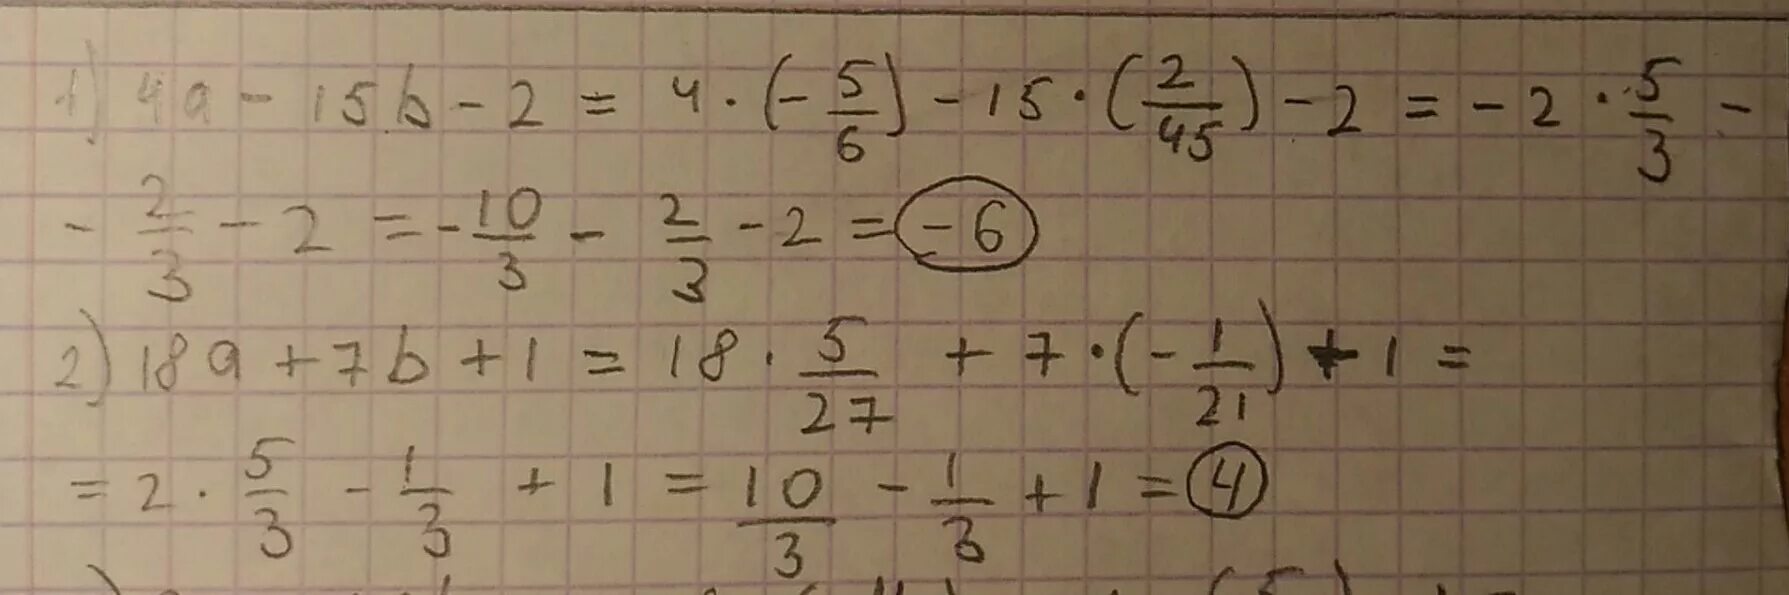 1) 4a - 15b - 2 = 4 · (- 5/6) - 15 · (2/45) - 2 = - 2 · 5/3 -
- 2/3 - 2 = - 10/3 - 2/3 - 2 = -6
2) 18a + 7b + 1 = 18 · 5/27 + 7 · (- 1/21) + 1 =
= 2 · 5/3 - 1/3 + 1 = 10/3 - 1/3 + 1 = 4